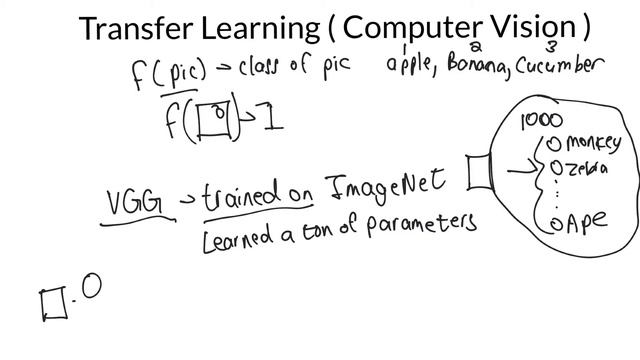 Transfer Learning ( Computer Vision )
1 2 3
f(pic) → class of pic apple, Banana, Cucumber
f( ) → 1
1000
monkey
Zebra
VGG → trained on ImageNet
Learned a ton of parameters
Ape